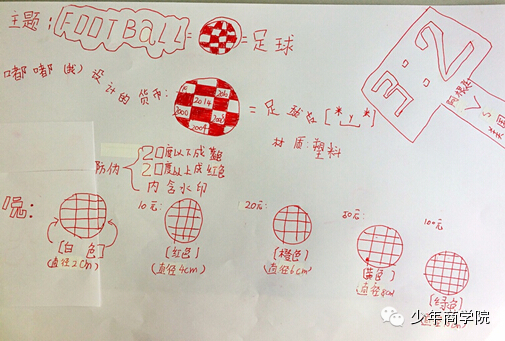 主题: FOOTBALL = = 足球
嘟嘟(我)设计的货币:
2014
2000
2004
= 足
[* y *]
材质:塑料
3:2
VS
防伪
20度以下成
20度以上成红色
内含水印
10元:
20元:
50元:
100元:
[白色]
(直径2cm)
[红色]
(直径4cm)
[橙色]
(直径6cm)
[黄色]
(直径8cm)
[绿色]
少年商学院